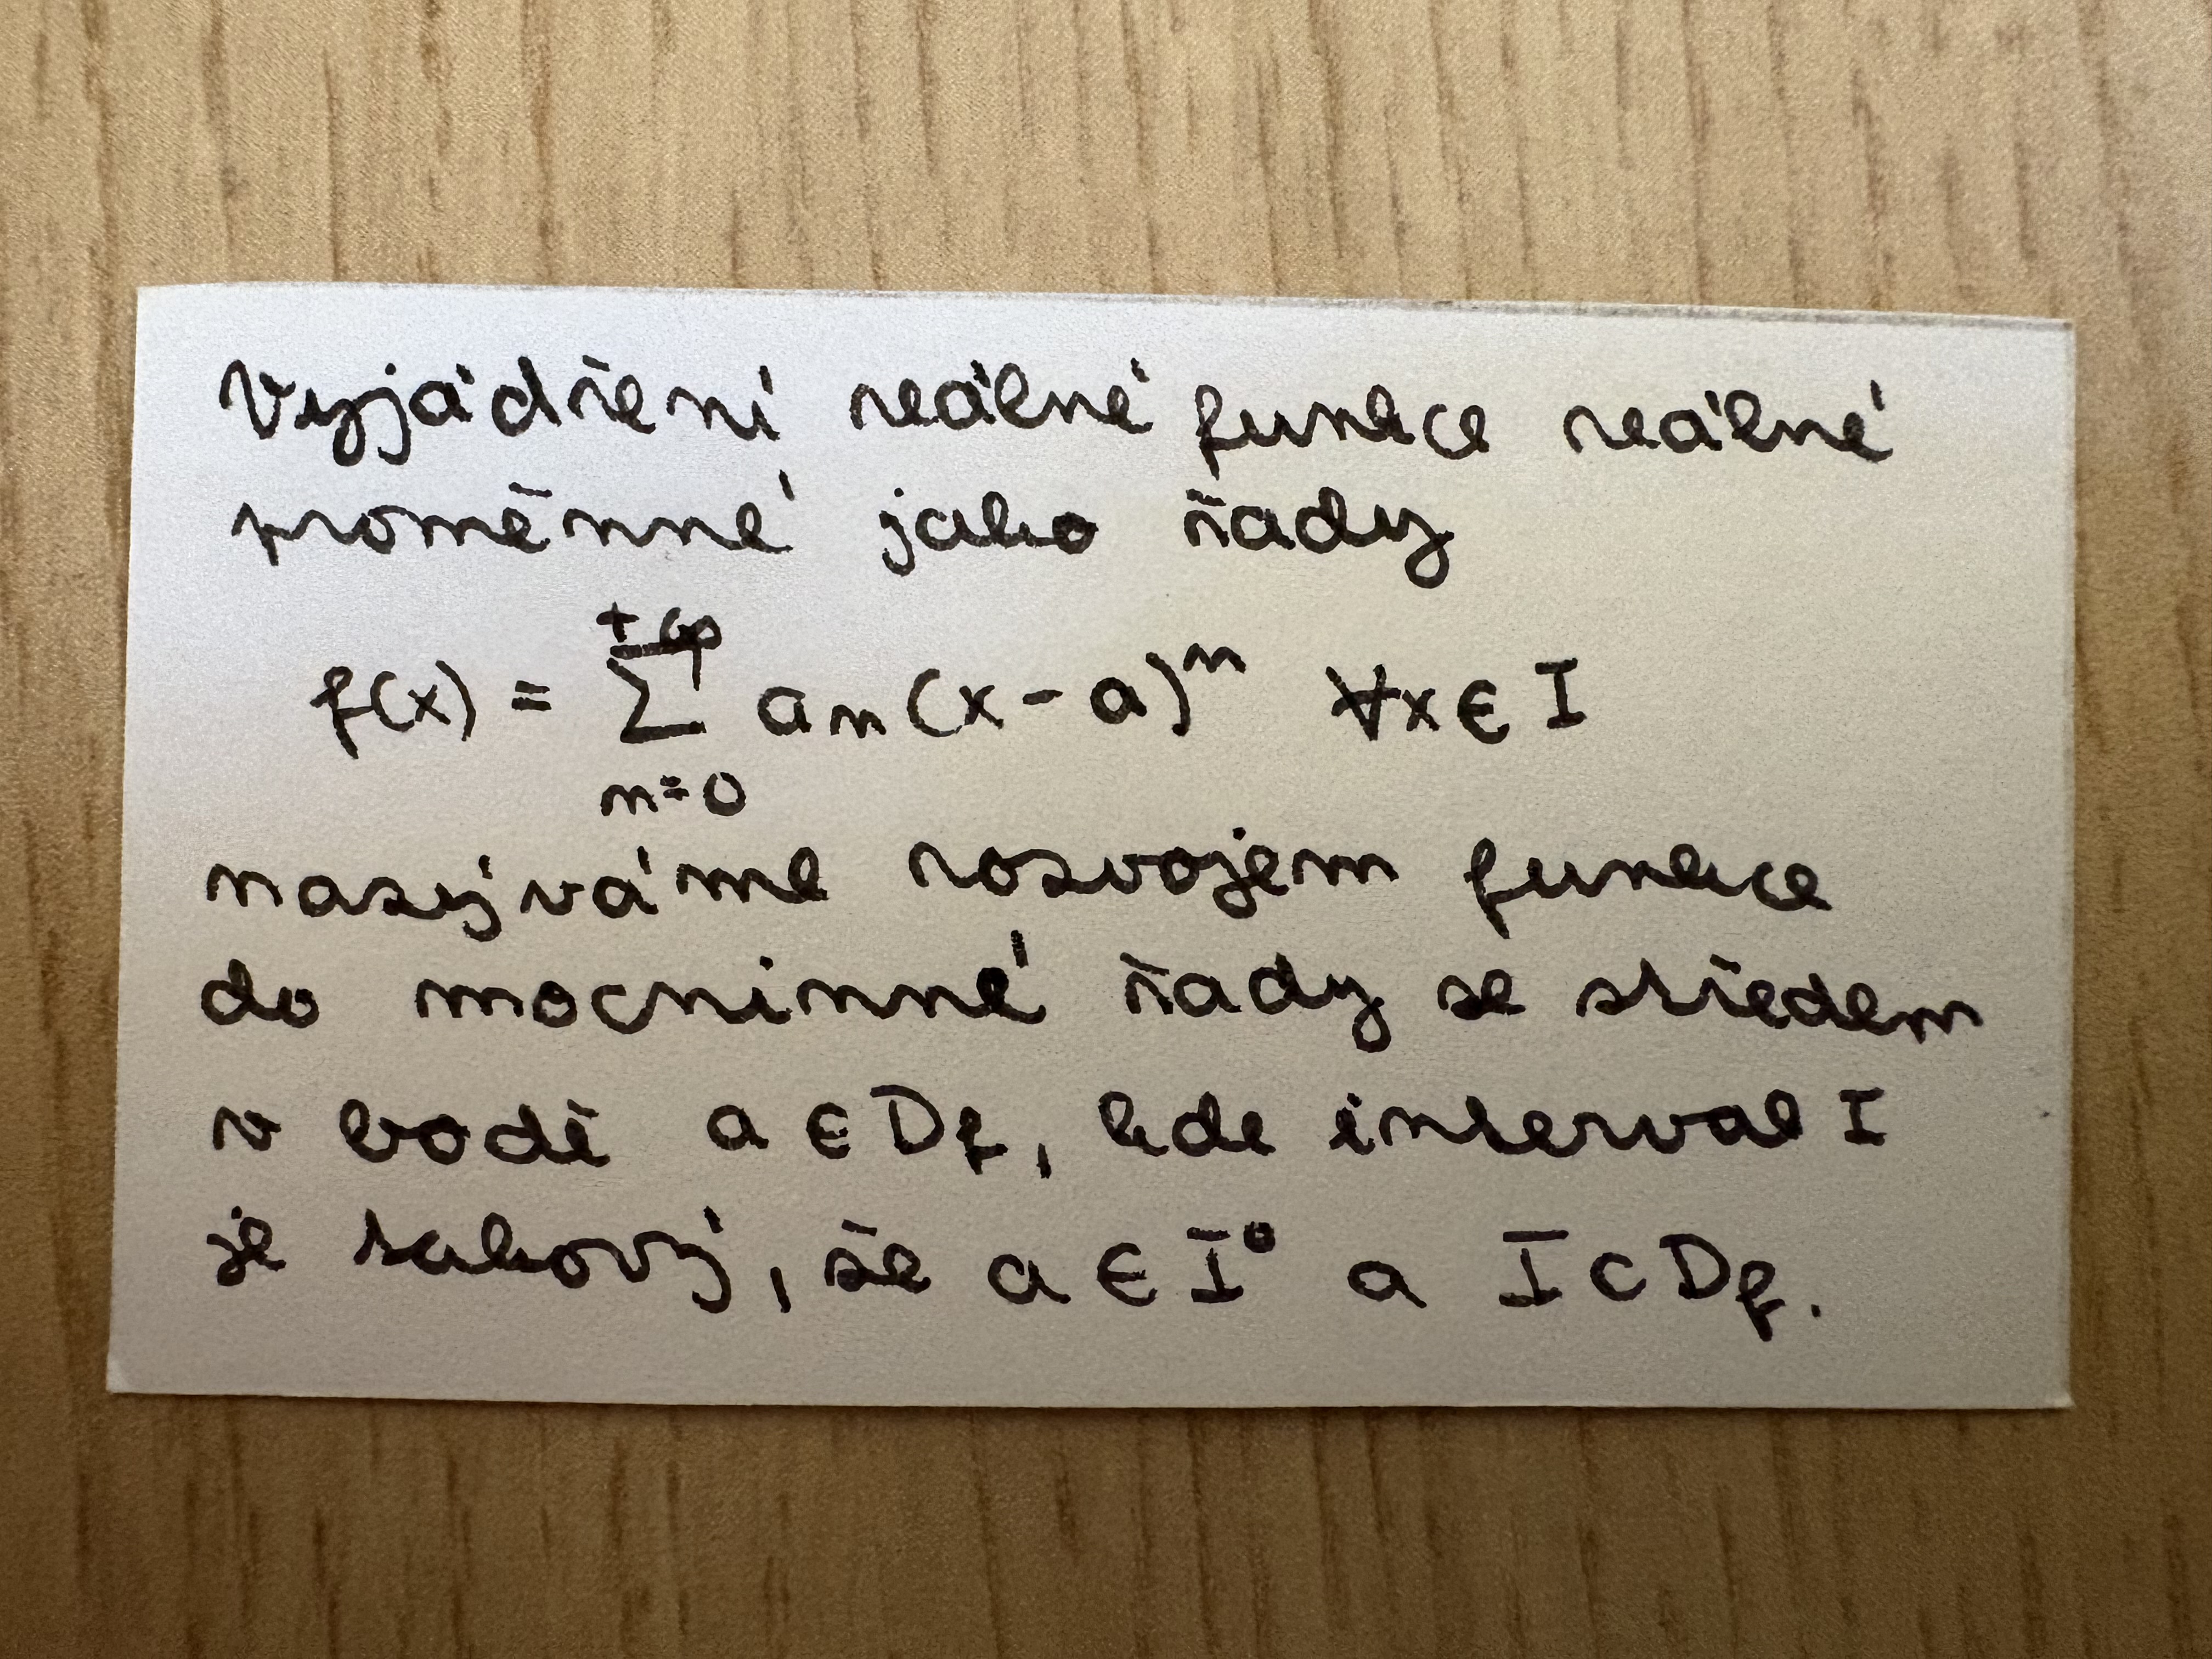 Vyjádření reálné funkce reálné
proměnné jako řady
f(x) = \sum_{n=0}^{+\infty} a_n (x-a)^n ∀x ∈ I
nazýváme rozvojem funkce
do mocninné řady se středem
v bodě a ∈ D_f, kde interval I
je takový, že a ∈ I° a I ⊂ D_f.